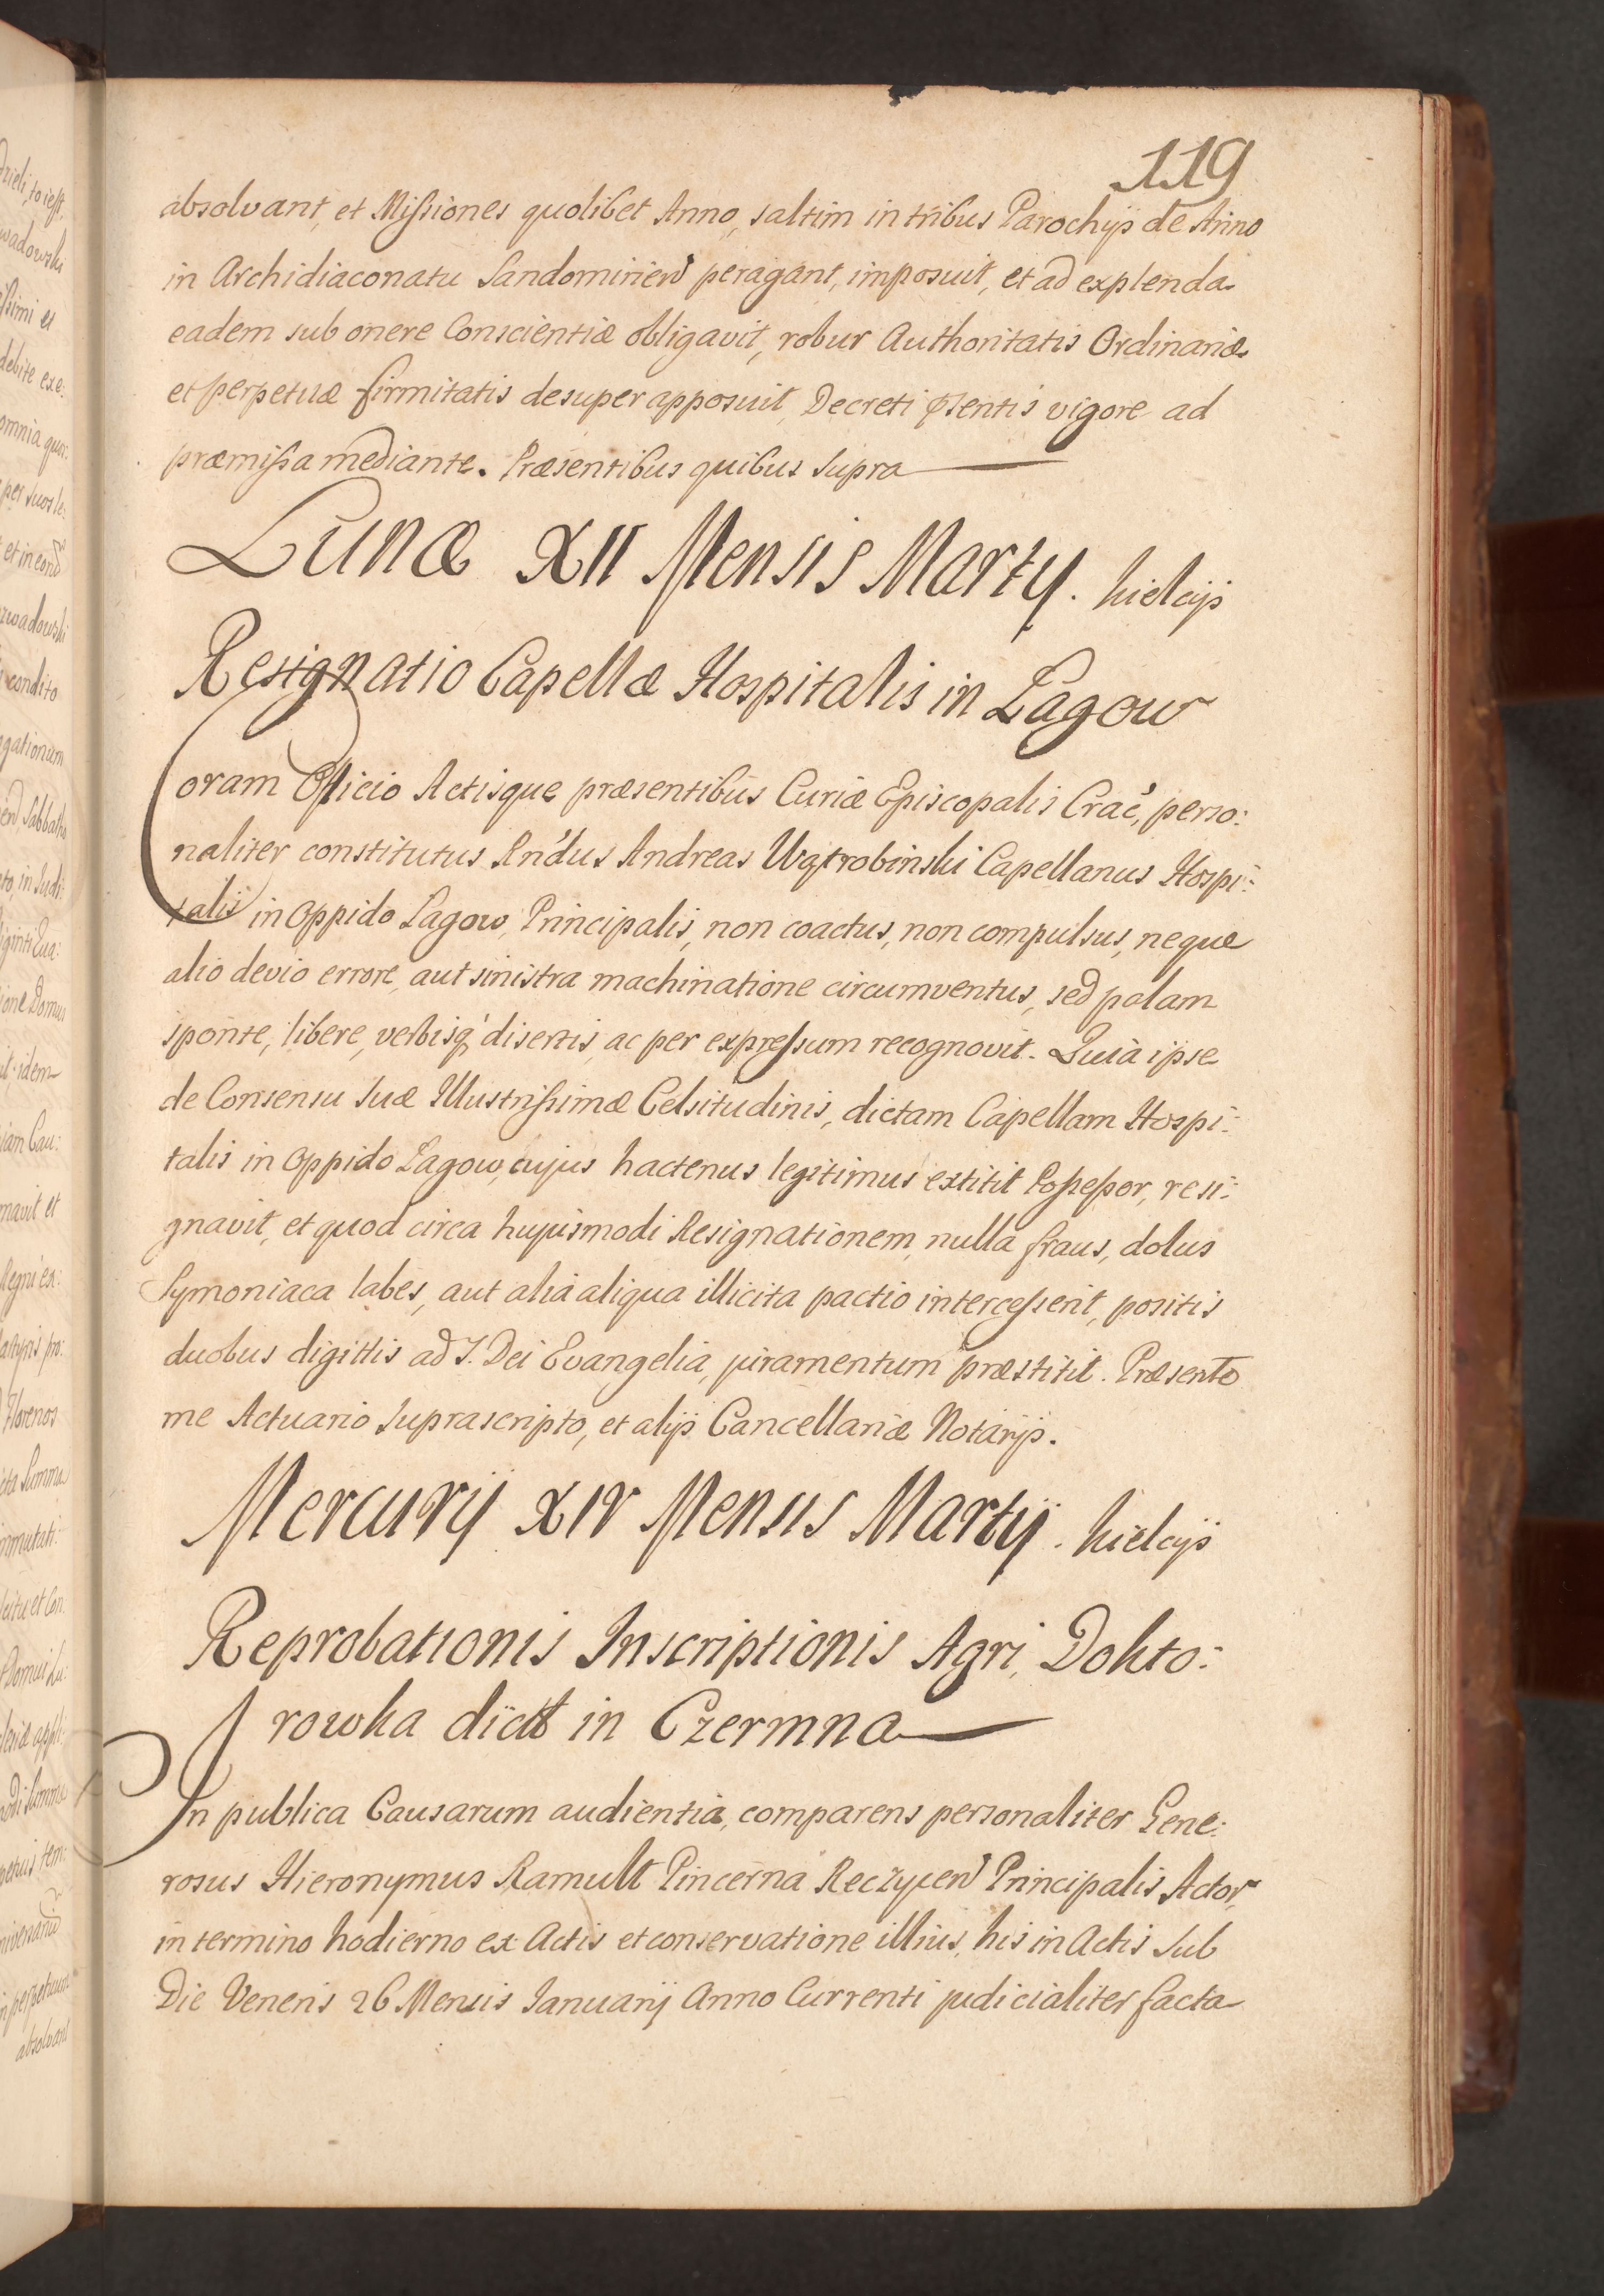 119
absolvant, et Missiones quolibet Anno, saltim in tribus Parochijs de Anno
in Archidiaconatu Sandomirien̄ peragant, imposuit, et ad explenda
eadem sub onere Conscientiæ obligavit, robur Authoritatis Ordinariæ
et perpetuæ firmitatis desuper apposuit, Decreti p̄sentis vigore ad
præmissa mediante. Præsentibus quibus supra
Lunæ XII Mensis Martij. Kielcijs
Resignatio Capellæ Hospitalis in Lagow
Coram Officio Actisque præsentibus Curiæ Episcopalis Crac̀, perso:
naliter constitutus Rn̄dus Andreas Wątrobinski Capellanus Hospi:
talis in Oppido Lagow, Principalis, non coactus, non compulsus, neque
alio devio errore, aut sinistra machinatione circumventus, sed palam
sponte, libere, verbisq̀ disertis, ac per expressum recognovit. Quia ipse
de Consensu Suæ Illustrissimæ Celsitudinis, dictam Capellam Hospi:
talis in Oppido Lagow, cujus hactenus legitimus extitit Possessor, resi:
gnavit, et quod circa hujusmodi Resignationem, nulla fraus, dolus
Symoniaca labes, aut alia aliqua illicita pactio intercesserit, positis
duobus digittis ad S. Dei Evangelia, juramentum præstitit. Præsente
me Actuario suprascripto, et alijs Cancellariæ Notarijs.
Mercurij XIV Mensis Martij. Kielcijs
Reprobationis Inscriptionis Agri, Dokto:
rowka dict̄ in Czermna
In publica Causarum audientia, comparens personaliter Gene:
rosus Hieronymus Ramult Pincerna Reczycen̄ Principalis Actor,
in termino hodierno ex Actis et conservatione illius, his in Actis sub
Die Veneris 26 Mensis Januarij Anno Currenti judicialiter facta